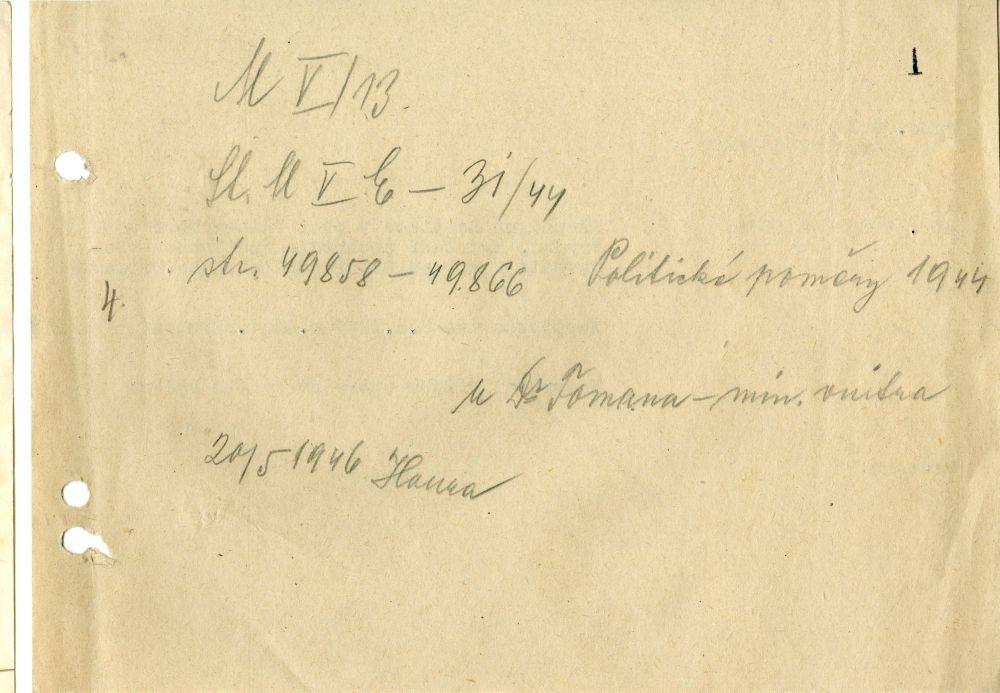 1
M V/13
St. M V E – 31/44
str. 49858 – 49.866 Politické poměry 1944
4.
u Dr Tomana – min. vnitra
20/5 1946